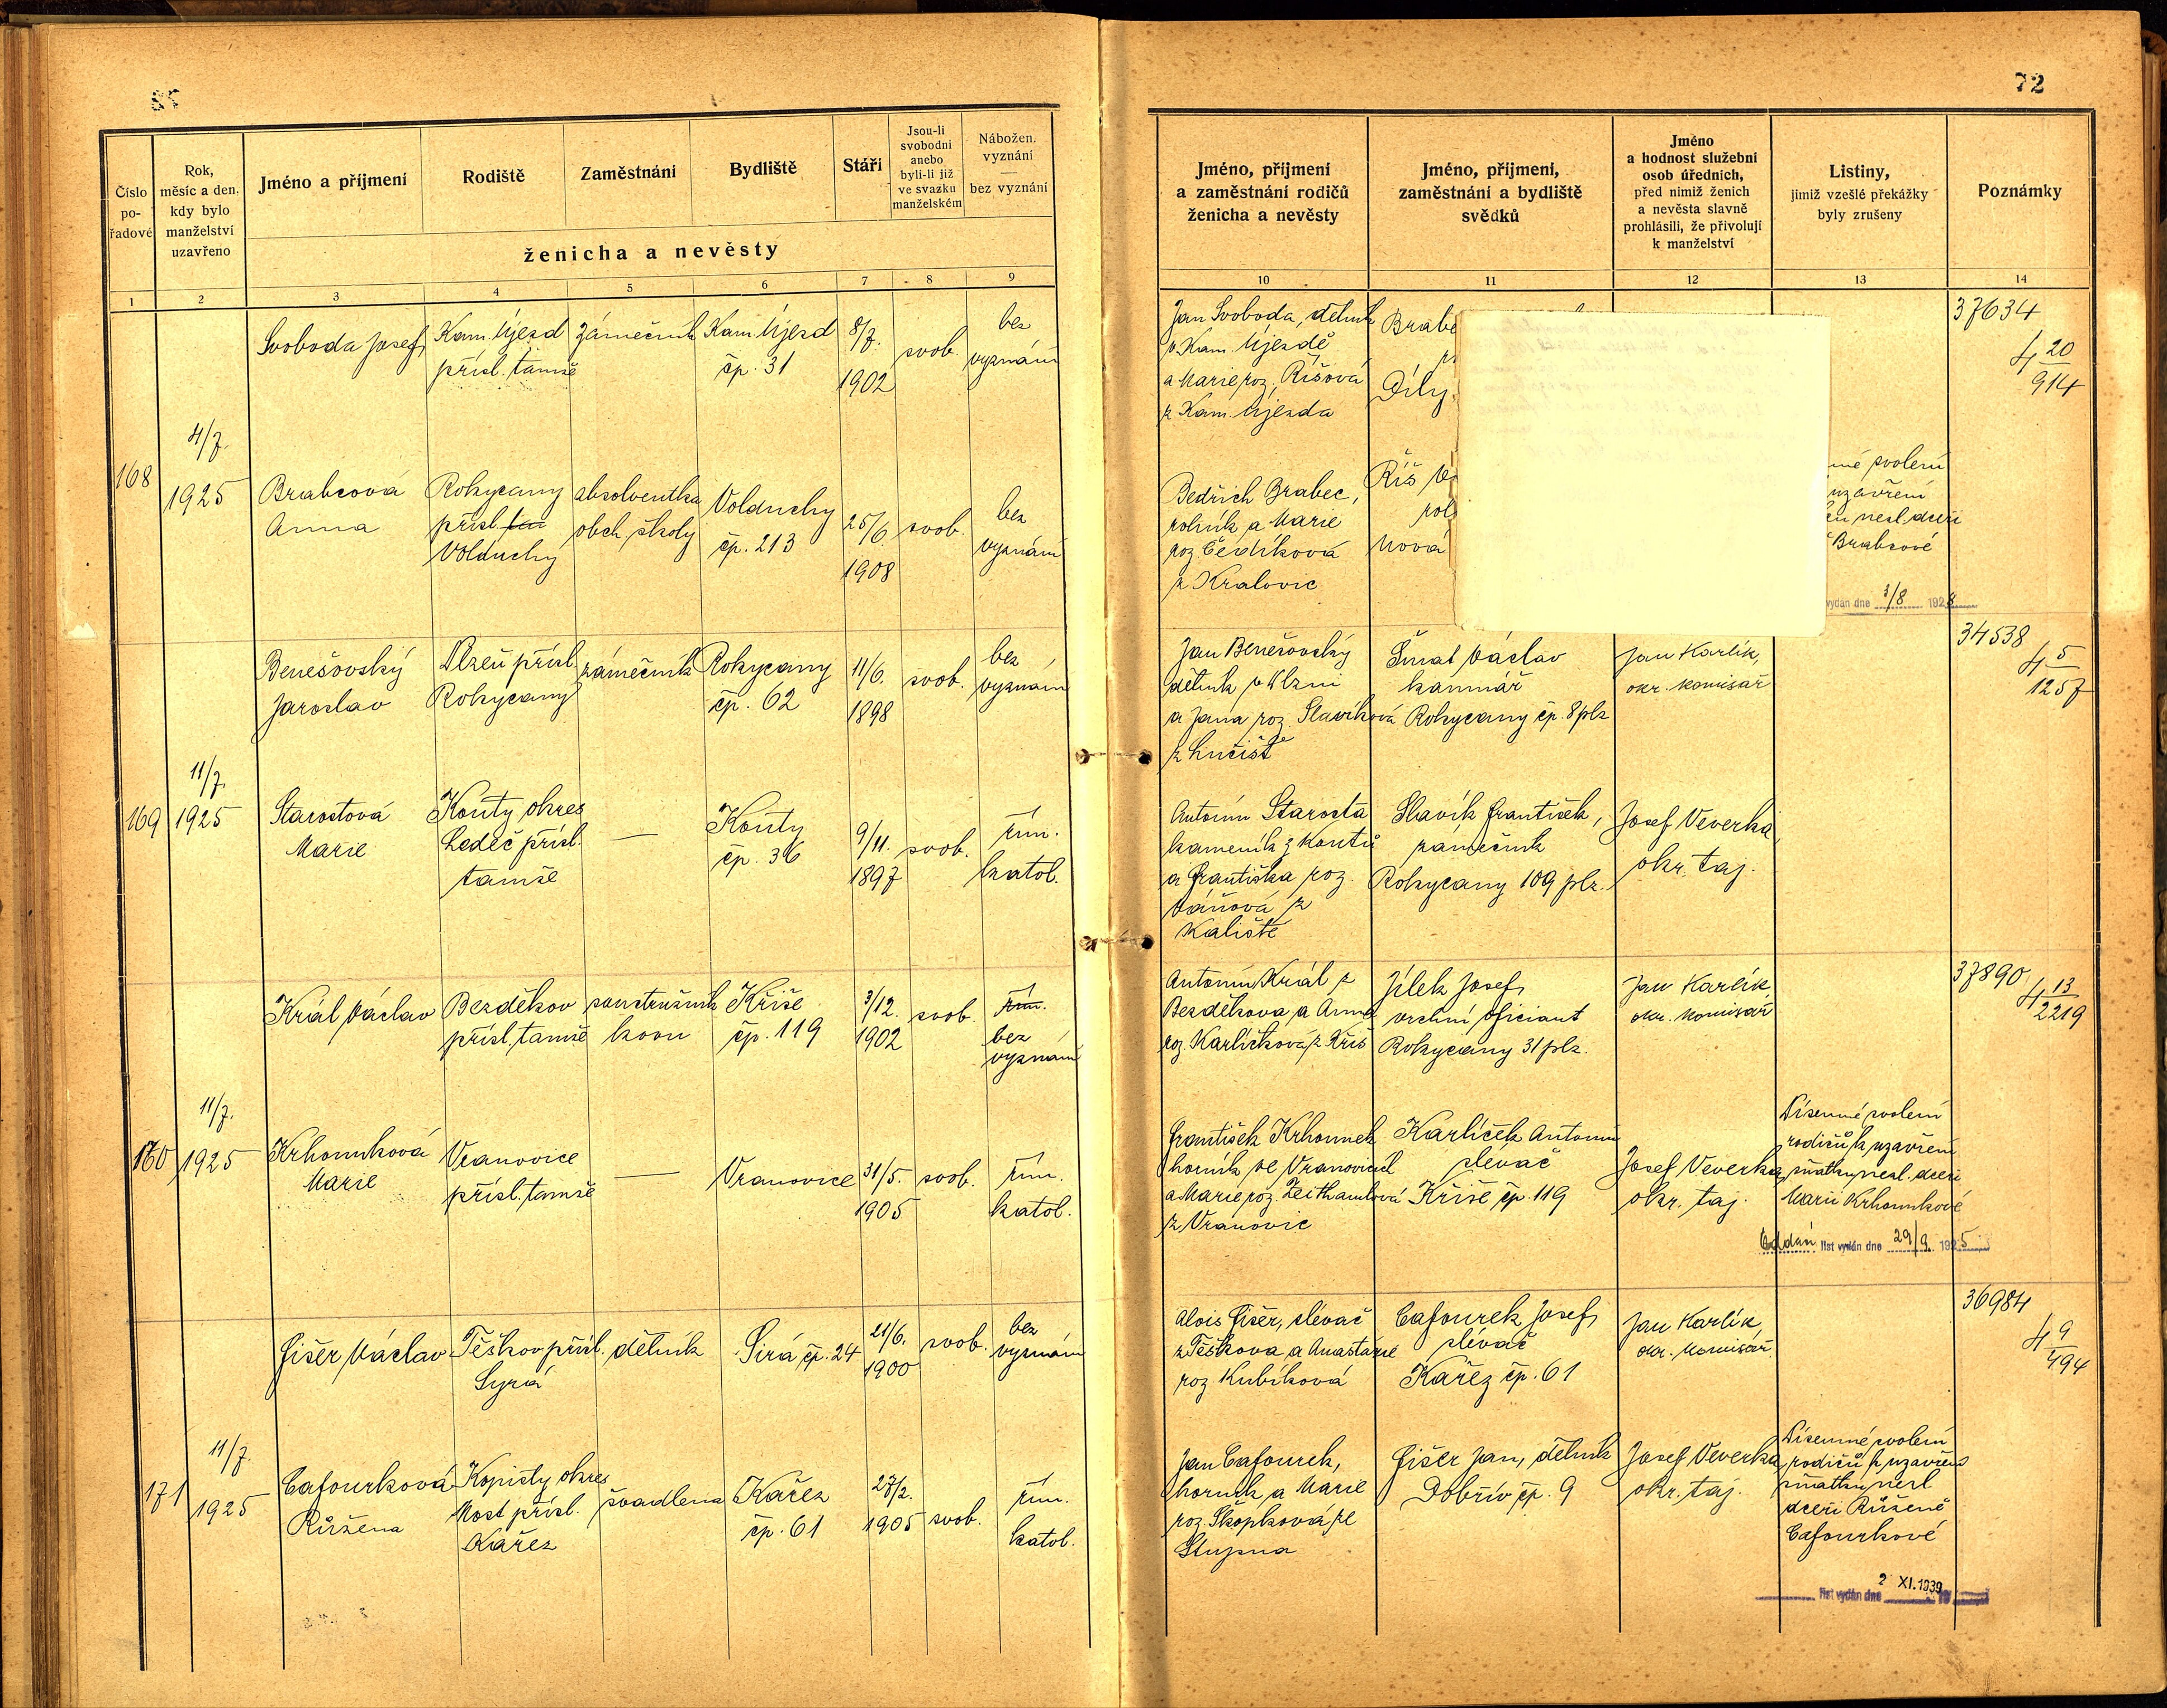 72
Číslo
po-
řadové
Rok,
měsíc a den,
kdy bylo
manželství
uzavřeno
Jméno a příjmení
Rodiště
Zaměstnání
Bydliště
Stáří
Jsou-li
svobodni
anebo
byli-li již
ve svazku
manželském
Nábožen.
vyznání
bez vyznání
ženicha a nevěsty
Jméno, příjmení
a zaměstnání rodičů
ženicha a nevěsty
Jméno, příjmení,
zaměstnání a bydliště
svědků
Jméno
a hodnost služební
osob úředních,
před nimiž ženich
a nevěsta slavně
prohlásili, že přivolují
k manželství
Listiny,
jimiž vzešlé překážky
byly zrušeny
Poznámky
1 2 3 4 5 6 7 8 9 10 11 12 13 14
168
4/7.
1925
Svoboda Josef
Kam. Újezd
přísl. tamže
zámečník
Kam. Újezd
čp. 31
8/7.
1902
svob.
bez
vyznání
Jan Svoboda, dělník
v Kam. Újezdě
a Marie roz. Říšová
z Kam. Újezda
Díly
37634
4 20
914
Brabcová
Anna
Rokycany
přísl.
Volduchy
absolventka
obch. školy
Volduchy
čp. 213
25/6
1908
svob.
bez
vyznání
Bedřich Brabec,
rolník a Marie
roz. Čedíková
z Kralovic
Říš
svolení
uzavření
nezl. dceři
Brabcové
vydán dne 3/8 1928
169
11/7.
1925
Benešovský
Jaroslav
Plzeň přísl.
Rokycany
zámečník
Rokycany
čp. 62
11/6.
1898
svob.
bez
vyznání
Jan Benešovský
dělník v Plzni
a Jana roz. Slavíková
z Lučiště
Šmat Václav
kamnář
Rokycany čp. 8 plz
Jan Karlík,
okr. komisař
34538
4 5
1257
Starostová
Marie
Kouty okres
Ledeč přísl.
tamže
—
Kouty
čp. 36
9/11.
1897
svob.
řím.
katol.
Antonín Starosta
kameník z Koutů
a Františka roz.
Váňová z
Kaliště
Slavík František,
zámečník
Rokycany 109 plz.
Josef Veverka,
okr. taj.
170
11/7.
1925
Král Václav
Bezděkov
přísl. tamže
soustružník
kovu
Kříše
čp. 119
3/12.
1902
svob.
řím.
bez
vyznání
Antonín Král z
Bezděkova a Anna
roz. Karlíčková z Kříš
Jílek Josef,
vrchní oficiant
Rokycany 31 plz.
Jan Karlík
okr. komisař
37890
4 13
2219
Krhounková
Marie
Vranovice
přísl. tamže
—
Vranovice
31/5.
1905
svob.
řím.
katol.
František Krhounek
horník ve Vranovicích
a Marie roz. Zeithamlová
z Vranovic
Karlíček Antonín
slévač
Kříše čp. 119
Josef Veverka,
okr. taj.
Písemné svolení
rodičů k uzavření
sňatku nezl. dceři
Marii Krhounkové
Oddán list vydán dne 29/9. 1925
171
11/7.
1925
Fišer Václav
Těškov přísl.
Syrá
dělník
Sirá čp. 24
21/6.
1900
svob.
bez
vyznání
Alois Fišer, slévač
z Těškova a Anastázie
roz. Kubíková
Cafourek Josef,
slévač
Kařez čp. 61
Jan Karlík,
okr. komisař.
36984
4 9
494
Cafourková
Růžena
Kopisty okres
Most přísl.
Kařez
švadlena
Kařez
čp. 61
27/2.
1905
svob.
řím.
katol.
Jan Cafourek,
horník a Marie
roz. Škopková ze
Stupna
Fišer Jan, dělník
Dobřív čp. 9
Josef Veverka
okr. taj.
Písemné svolení
rodičů k uzavření
sňatku nezl.
dceři Růženě
Cafourkové
list vydán dne 2 XI. 1939